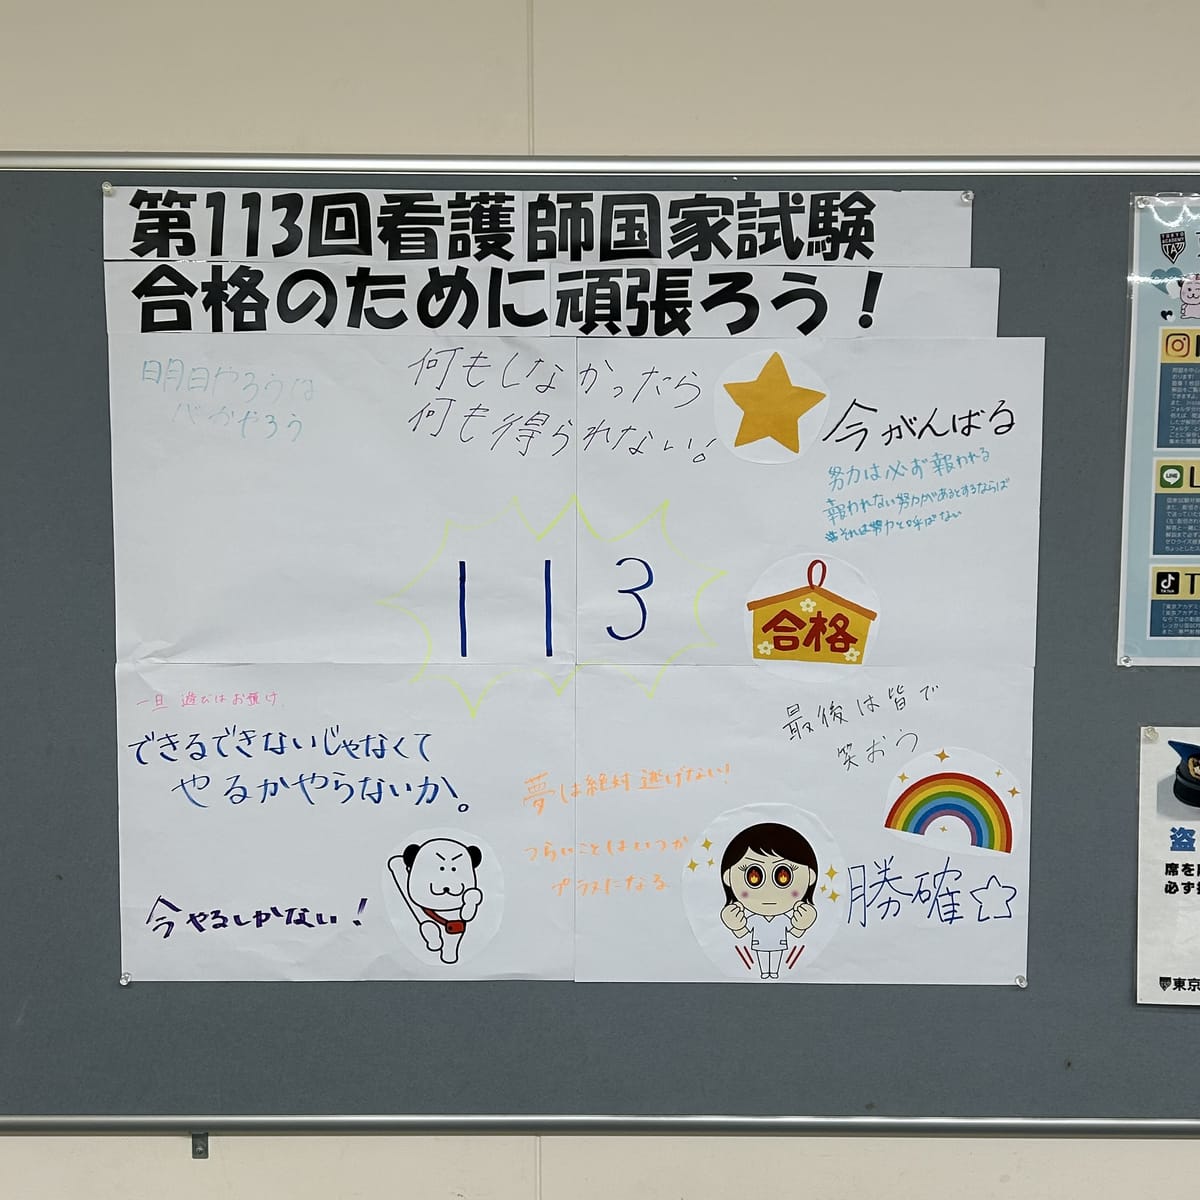 第113回看護師国家試験
合格のために頑張ろう！
明日やろうは
バカやろう
何もしなかったら
何も得られない！
今がんばる
努力は必ず報われる
報われない努力があるとするならば
それは努力と呼ばない
113
合格
一旦 遊びはお預け
できるできないじゃなくて
やるかやらないか。
今やるしかない！
夢は絶対逃げない！
つらいことはいつか
プラスになる
最後は皆で
笑おう
勝確☆
TOKYO
ACADEMY
TA
LINE
TikTok
盗
席を
必ず
東京